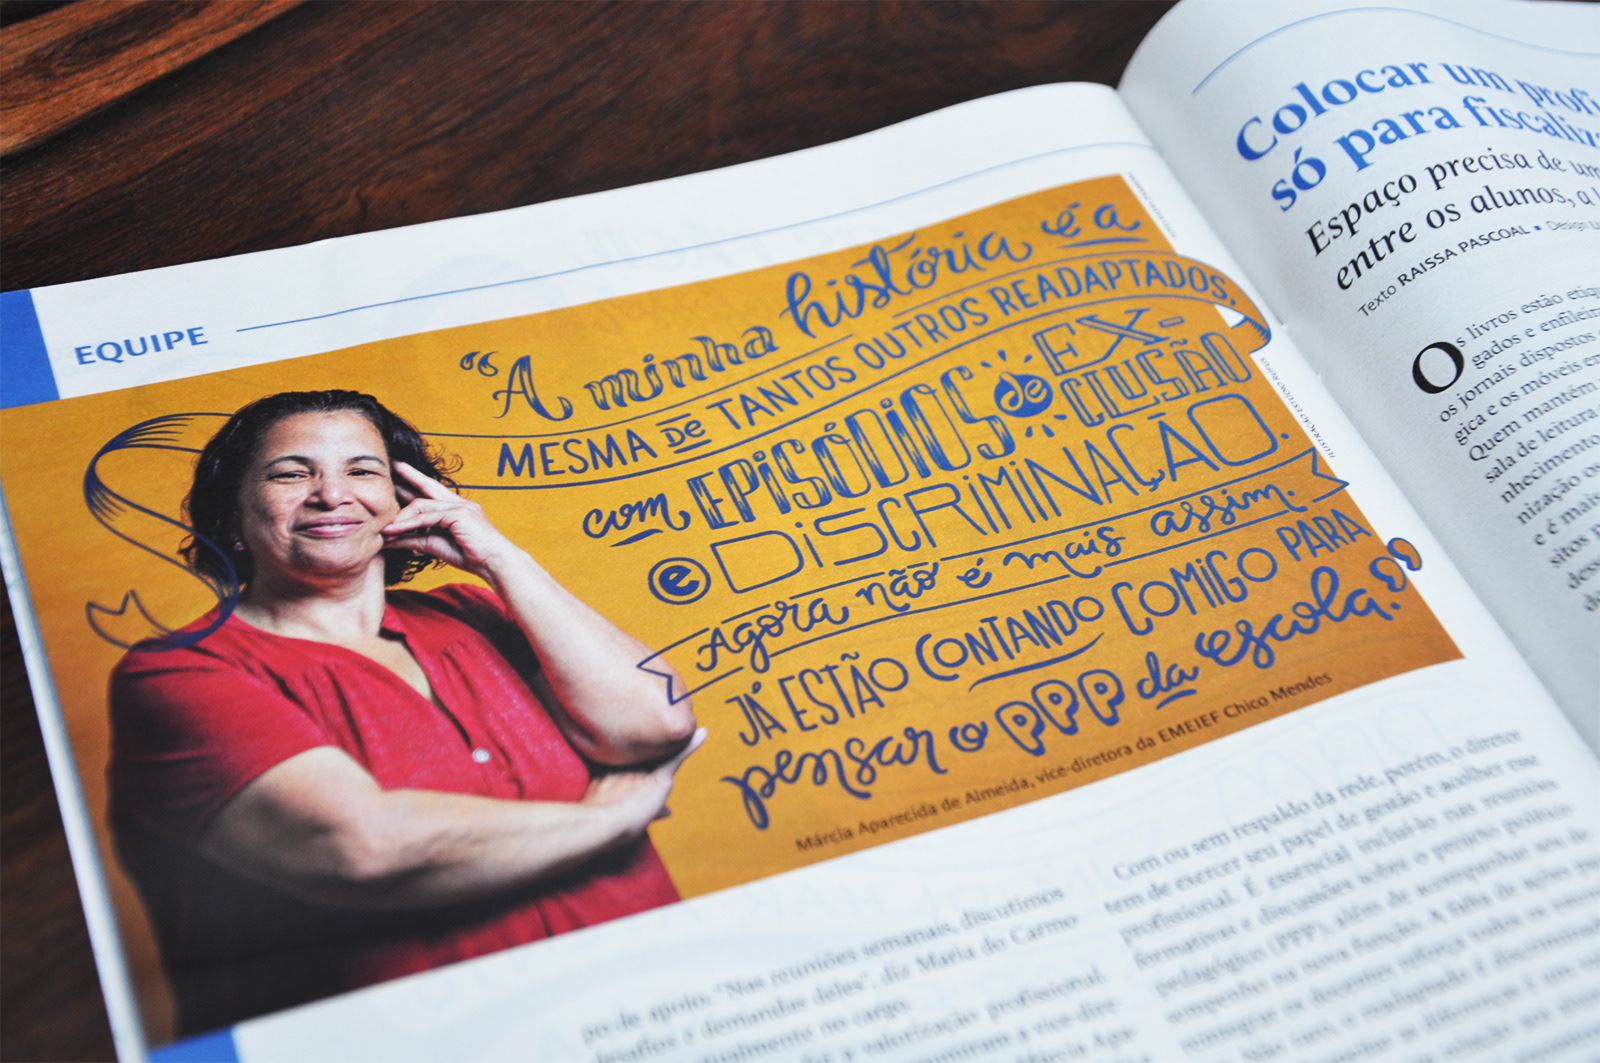 EQUIPE
“A minha história é a
MESMA DE TANTOS OUTROS READAPTADOS,
com EPISÓDIOS de EX-
CLUSÃO
e DISCRIMINAÇÃO.
Agora não é mais assim.
JÁ ESTÃO CONTANDO COMIGO PARA
pensar o PPP da escola.”
Márcia Aparecida de Almeida, vice-diretora da EMEIEF Chico Mendes
ILUSTRAÇÃO ESTÚDIO RUFUS
po de apoio. "Nas reuniões semanais, discutimos
desafios e demandas deles", diz Maria do Carmo
atualmente no cargo.
a valorização profissional
a vice-dire-
Márcia Apa-
Com ou sem respaldo da rede, porém, o diretor
tem de exercer seu papel de gestão e acolher esse
profissional. É essencial incluí-lo nas reuniões
formativas e discussões sobre o projeto político-
pedagógico (PPP), além de acompanhar seu de-
sempenho na nova função. A falta de ações para
reintegrar os docentes reforça
Não raro, o readaptado é discriminado
Colocar um profi
só para fiscaliz
Espaço precisa de um
entre os alunos, a l
Texto RAISSA PASCOAL • Design Lu
Os livros estão etiq
gados e enfileira
os jornais dispostos
gica e os móveis em
Quem mantém
sala de leitura
nhecimento
nização os
e é mais
sitos p